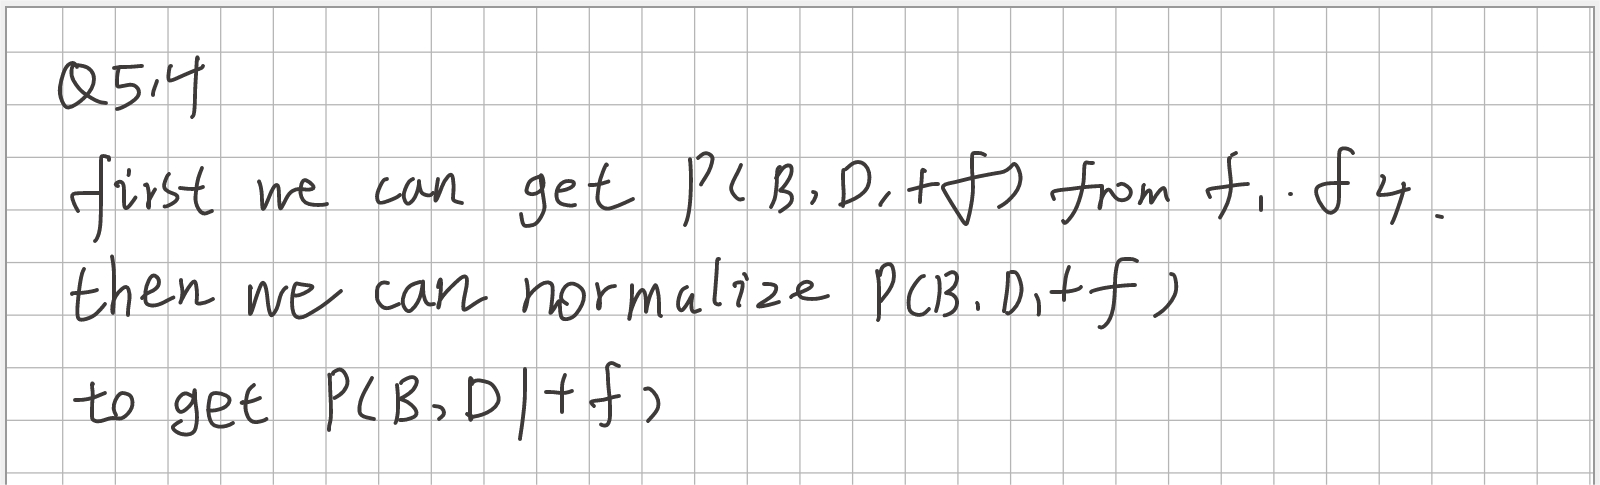 Q5.4
first we can get P(B, D, +f) from f1 · f4.
then we can normalize P(B, D, +f)
to get P(B, D | +f)